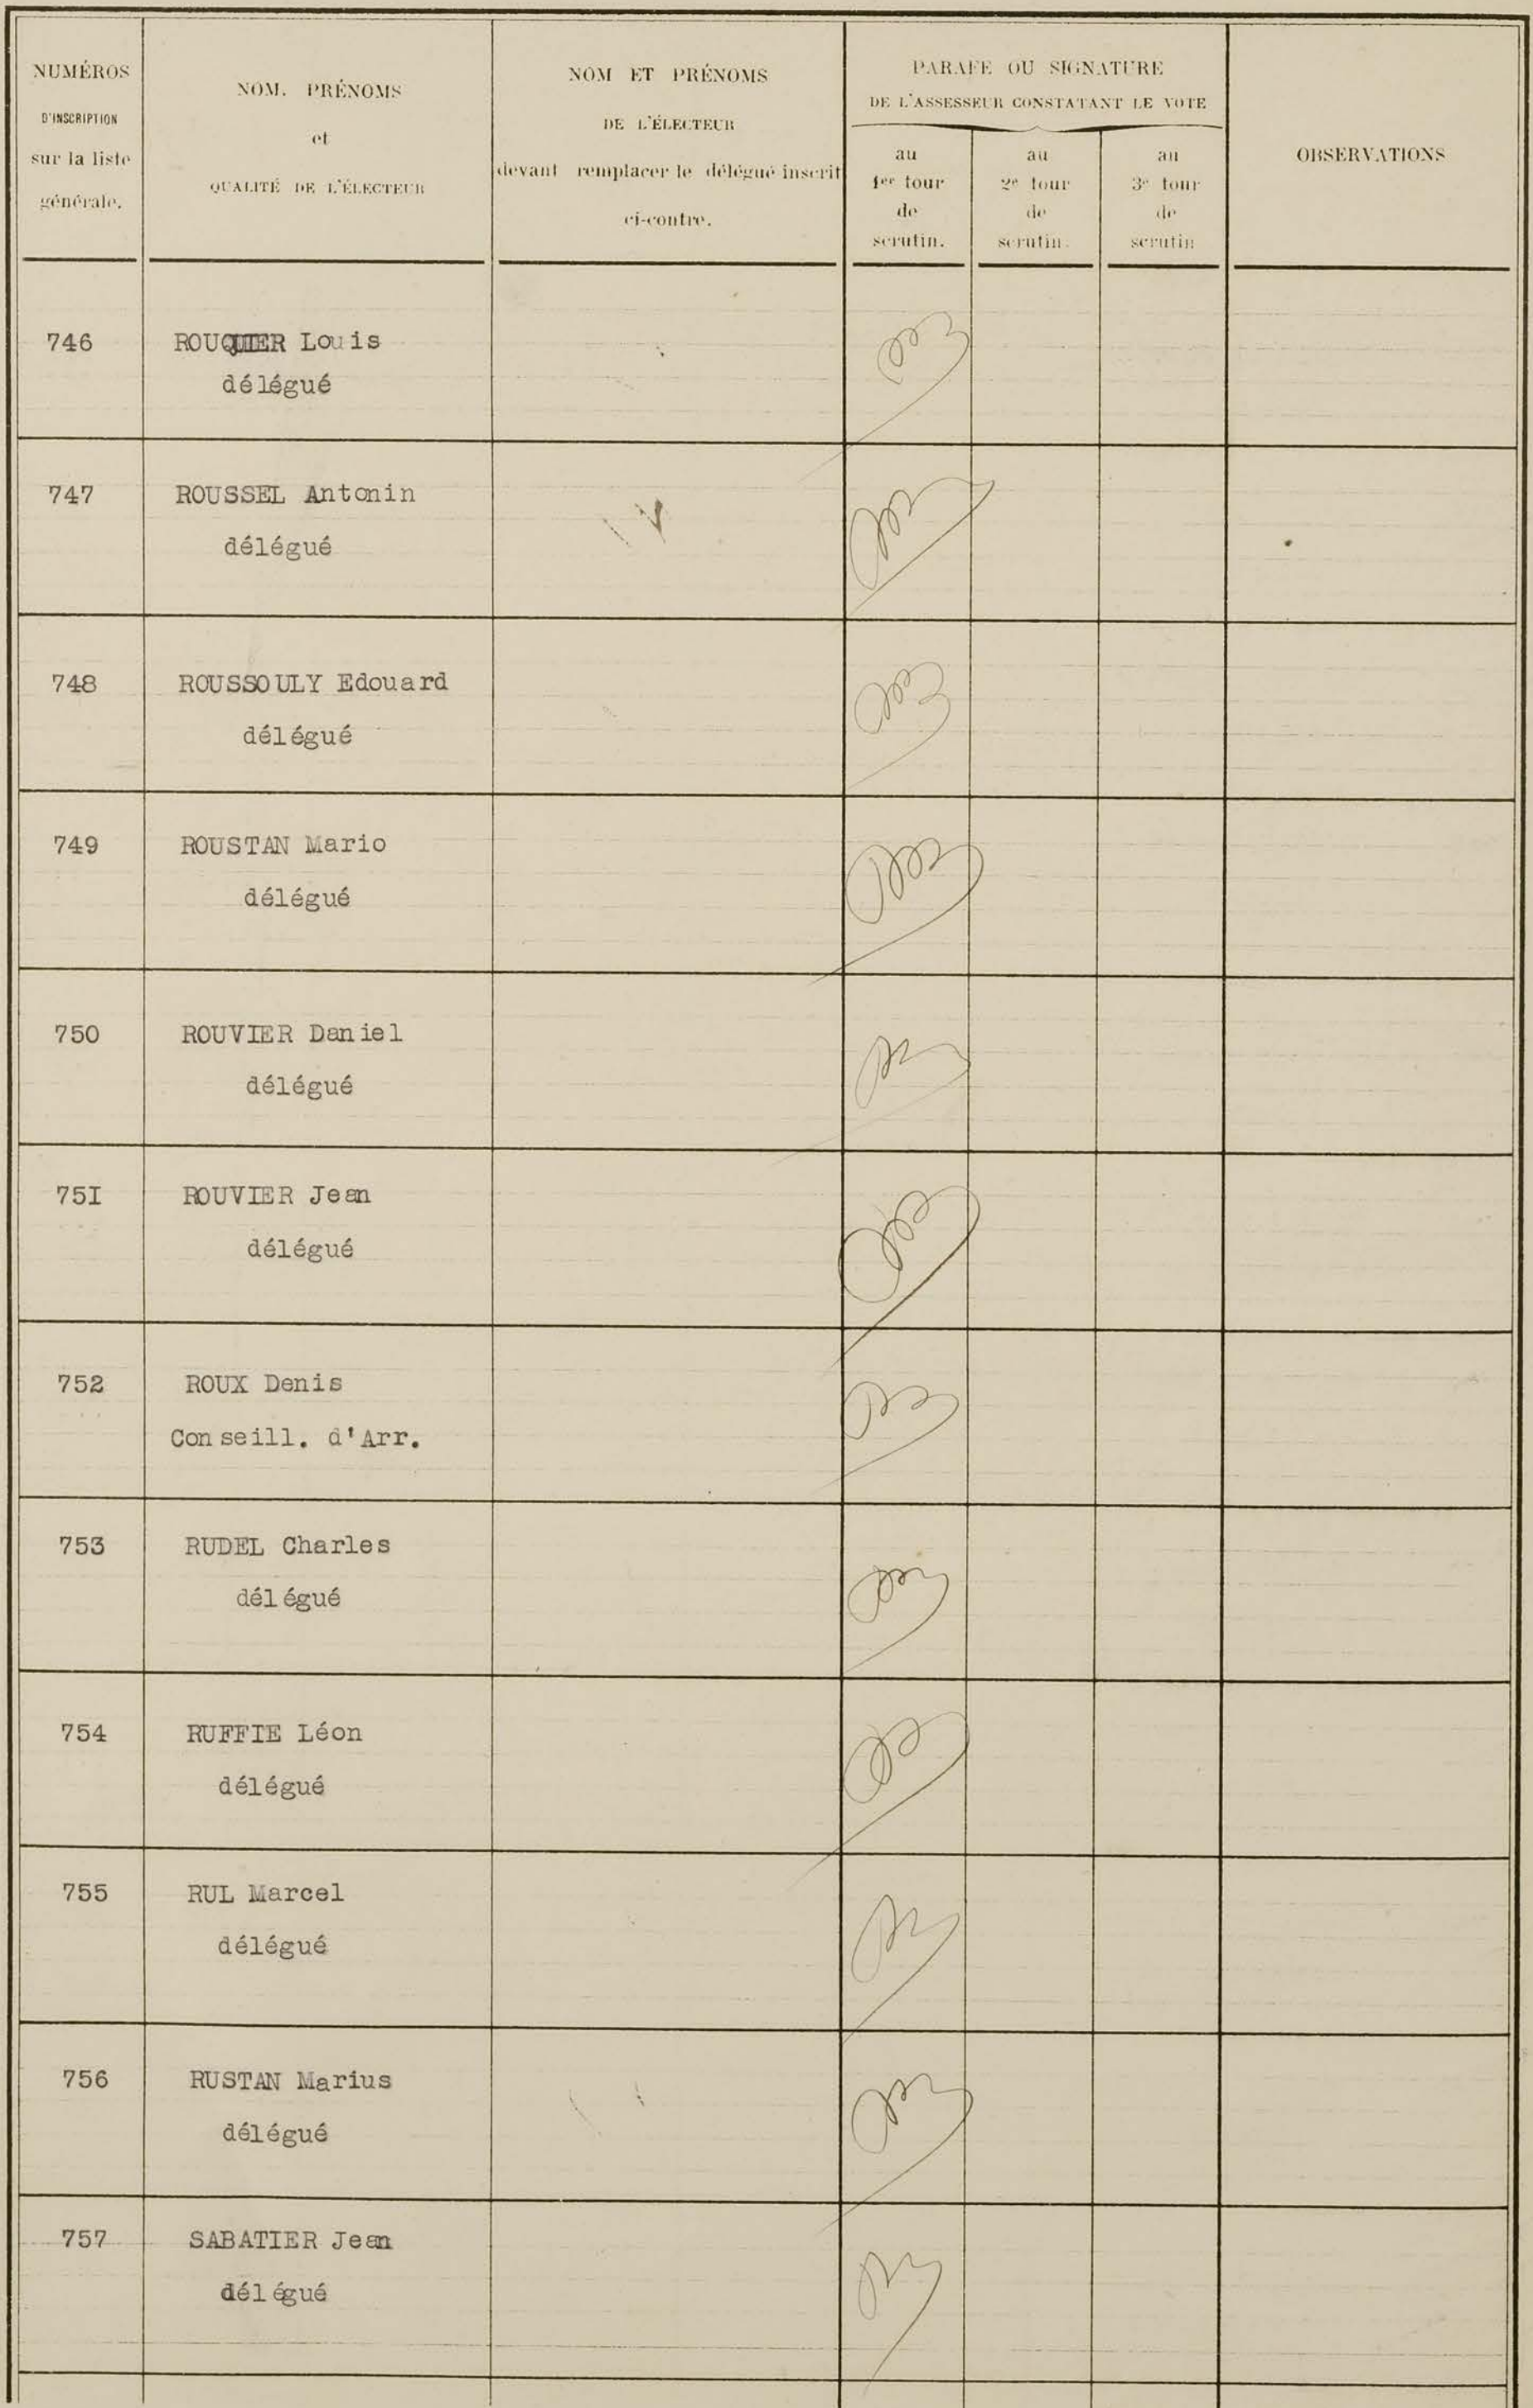 NUMÉROS
D'INSCRIPTION
sur la liste
générale.
NOM, PRÉNOMS
et
QUALITÉ DE L'ÉLECTEUR
NOM ET PRÉNOMS
DE L'ÉLECTEUR
devant remplacer le délégué inscrit
ci-contre.
PARAFE OU SIGNATURE
DE L'ASSESSEUR CONSTATANT LE VOTE
au
1er tour
de
scrutin.
au
2e tour
de
scrutin.
au
3e tour
de
scrutin
OBSERVATIONS
746
ROUQUIER Louis
délégué
747
ROUSSEL Antonin
délégué
748
ROUSSOULY Edouard
délégué
749
ROUSTAN Mario
délégué
750
ROUVIER Daniel
délégué
75I
ROUVIER Jean
délégué
752
ROUX Denis
Conseill. d'Arr.
753
RUDEL Charles
délégué
754
RUFFIE Léon
délégué
755
RUL Marcel
délégué
756
RUSTAN Marius
délégué
757
SABATIER Jean
délégué